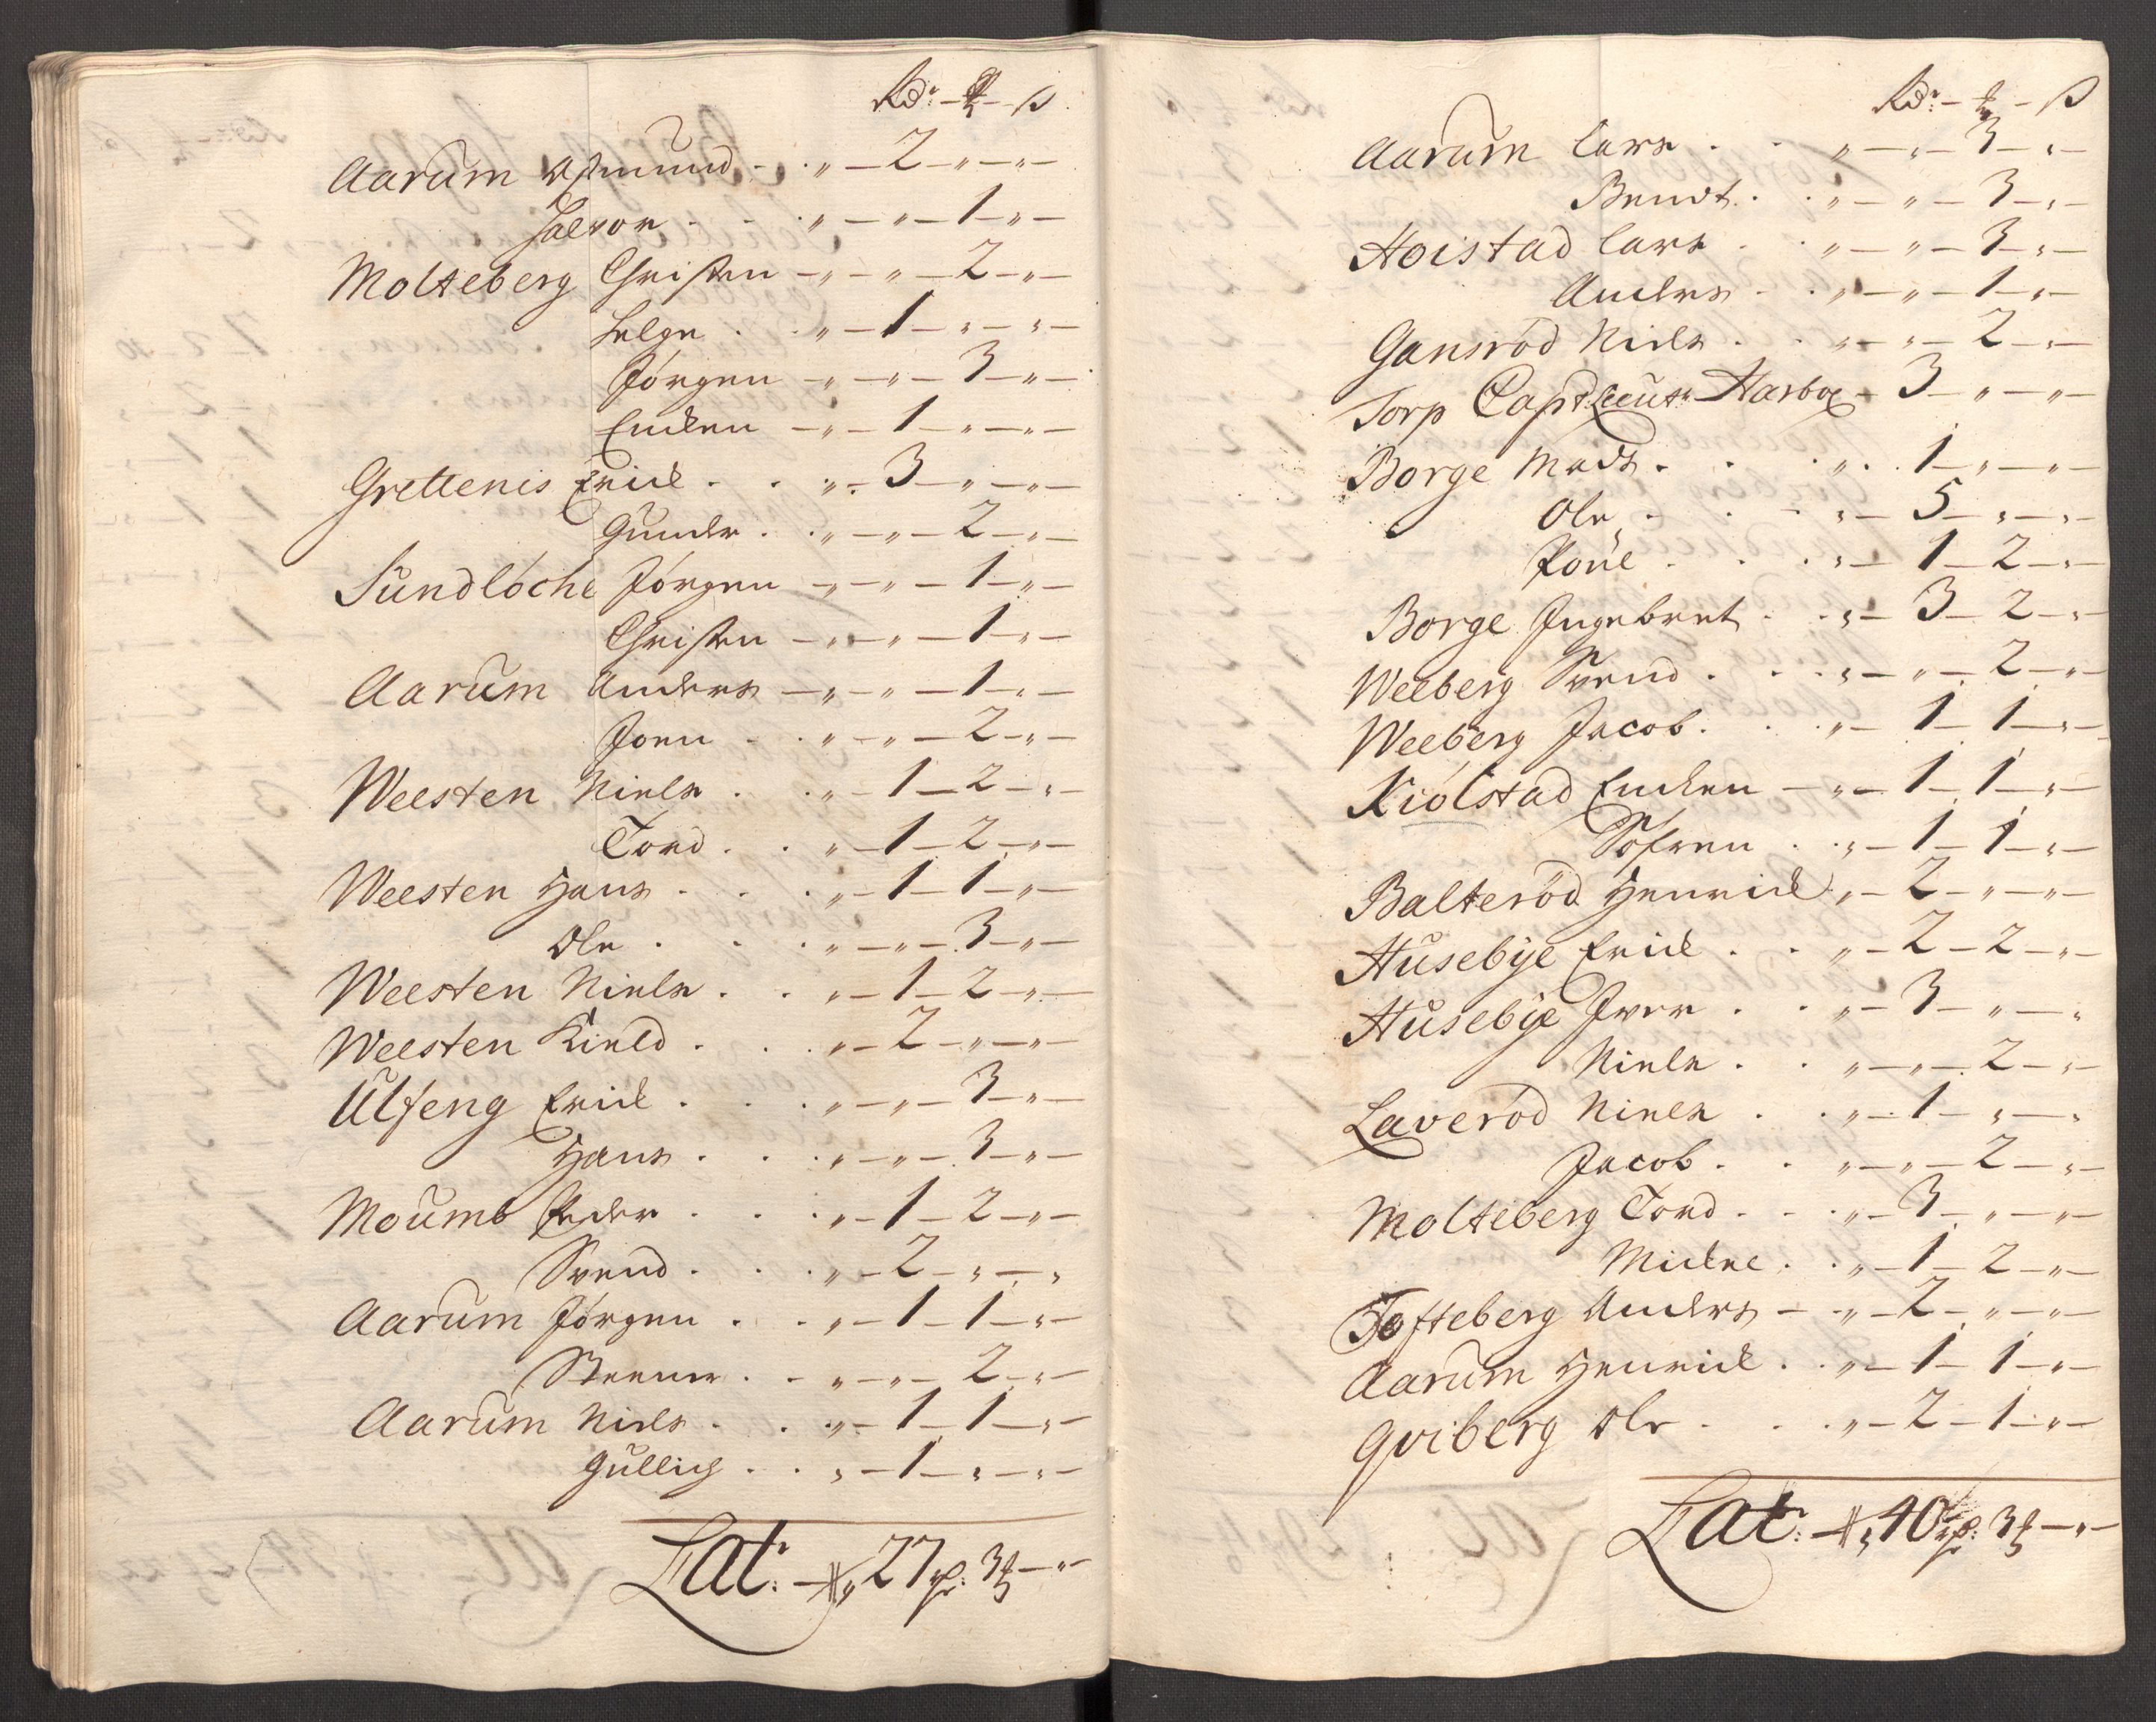 Rd: — ℔ — ß
Aarum Asmund - . „ — 2 — „ — „ —
Halvor . . . „ — „ — 1 — „ —
Molteberg Christen — „ — „ — 2 — „ —
Helge . . „ — 1 — „ — „ —
Jórgen — „ — „ — 3 — „ —
Endren — „ — 1 — „ — „ —
Grettenis Erick . . „ . 3 — „ — „ —
Gunder . . „ — „ — 2 — „ —
Sundlóche Jórgen — „ — „ — 1 — „ —
Christen — „ — „ — 1 — „ —
Aarum Anders — „ — „ — 1 — „ —
Joen . . „ — „ — 2 — „ —
Weesten Niels . . „ — 1 — 2 — „ —
Tord . . „ — 1 — 2 — „ —
Weesten Hans . . . „ — 1 — 1 — „ —
Ole . . . „ — „ — 3 — „ —
Weesten Niels . . „ — 1 — 2 — „ —
Weesten Kield . . . „ — 2 — „ — „ —
Ulfeng Erick . . . „ — „ — 3 — „ —
Hans . . . „ — „ — 3 — „ —
Moumb Peder . . . „ — 1 — 2 — „ —
Svend . . . „ — 2 — „ — „
Aarum Jórgen . . „ — 1 — 1 — „ —
Steener . . „ — „ — 2 — „ —
Aarum Niels . . „ — 1 — 1 — „ —
Gullich . . „ — 1 — „ — „ —
Lat: — „ 27 3 — „ —
Rd: — ℔ — ß
Aarum Lars . . „ — „ — 3 — „ —
Bendt . . „ — „ — 3 — „ —
Hoistad Lars . . „ — „ — 3 — „ —
Anders . . „ — „ — 1 — „ —
Gansród Niels . . „ — „ — 2 — „ —
Torp Capt: Leut: Harboe — 3 — „ — „ —
Borge Mads . . . „ . . 1 — „ — „ —
Ole . . . „ — 5 — „ — „ —
Poúel . . . „ — 1 — 2 — „ —
Borge Ingebret . . „ — 3 — 2 — „ —
Weeberg Svend . . . „ — „ — 2 — „ —
Weeberg Jacob . . . „ — 1 — 1 — „ —
Kiólstad Endren — „ — 1 — 1 — „ —
Sófren . . „ — 1 — 1 — „ —
Balteród Henrick . „ — 2 — „ — „ —
Husebye Erick . . „ — 2 — 2 — „ —
Husebye Iver . . „ — 3 — „ — „
Niels . . „ — „ — 2 — „ —
Laveród Niels . . „ — 1 — „ — „
Jacob . . „ — „ — 2 — „ —
Molteberg Tord . . . „ — 3 — „ — „ —
Mickel . . „ — 1 — 2 — „ —
Tofteberg Anders — „ — 2 — „ — „ —
Aarum Henrick . . „ — 1 — 1 — „ —
Qviberg Ole . . . „ — 2 — 1 — „ —
Lat: — „ 40 3 — „ —